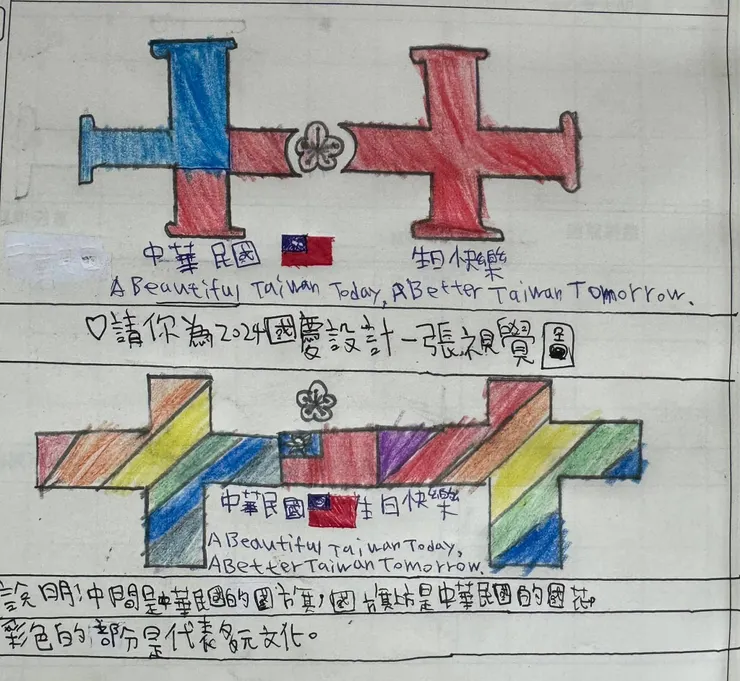 中華民國 生日快樂
A Beautiful Taiwan Today, A Better Taiwan Tomorrow.
♡請你為2024國慶設計一張視覺圖
中華民國 生日快樂
A Beautiful Taiwan Today,
A Better Taiwan Tomorrow.
說明:中間是中華民國的國旗,國旗上方是中華民國的國花。
彩色的部分是代表多元文化。